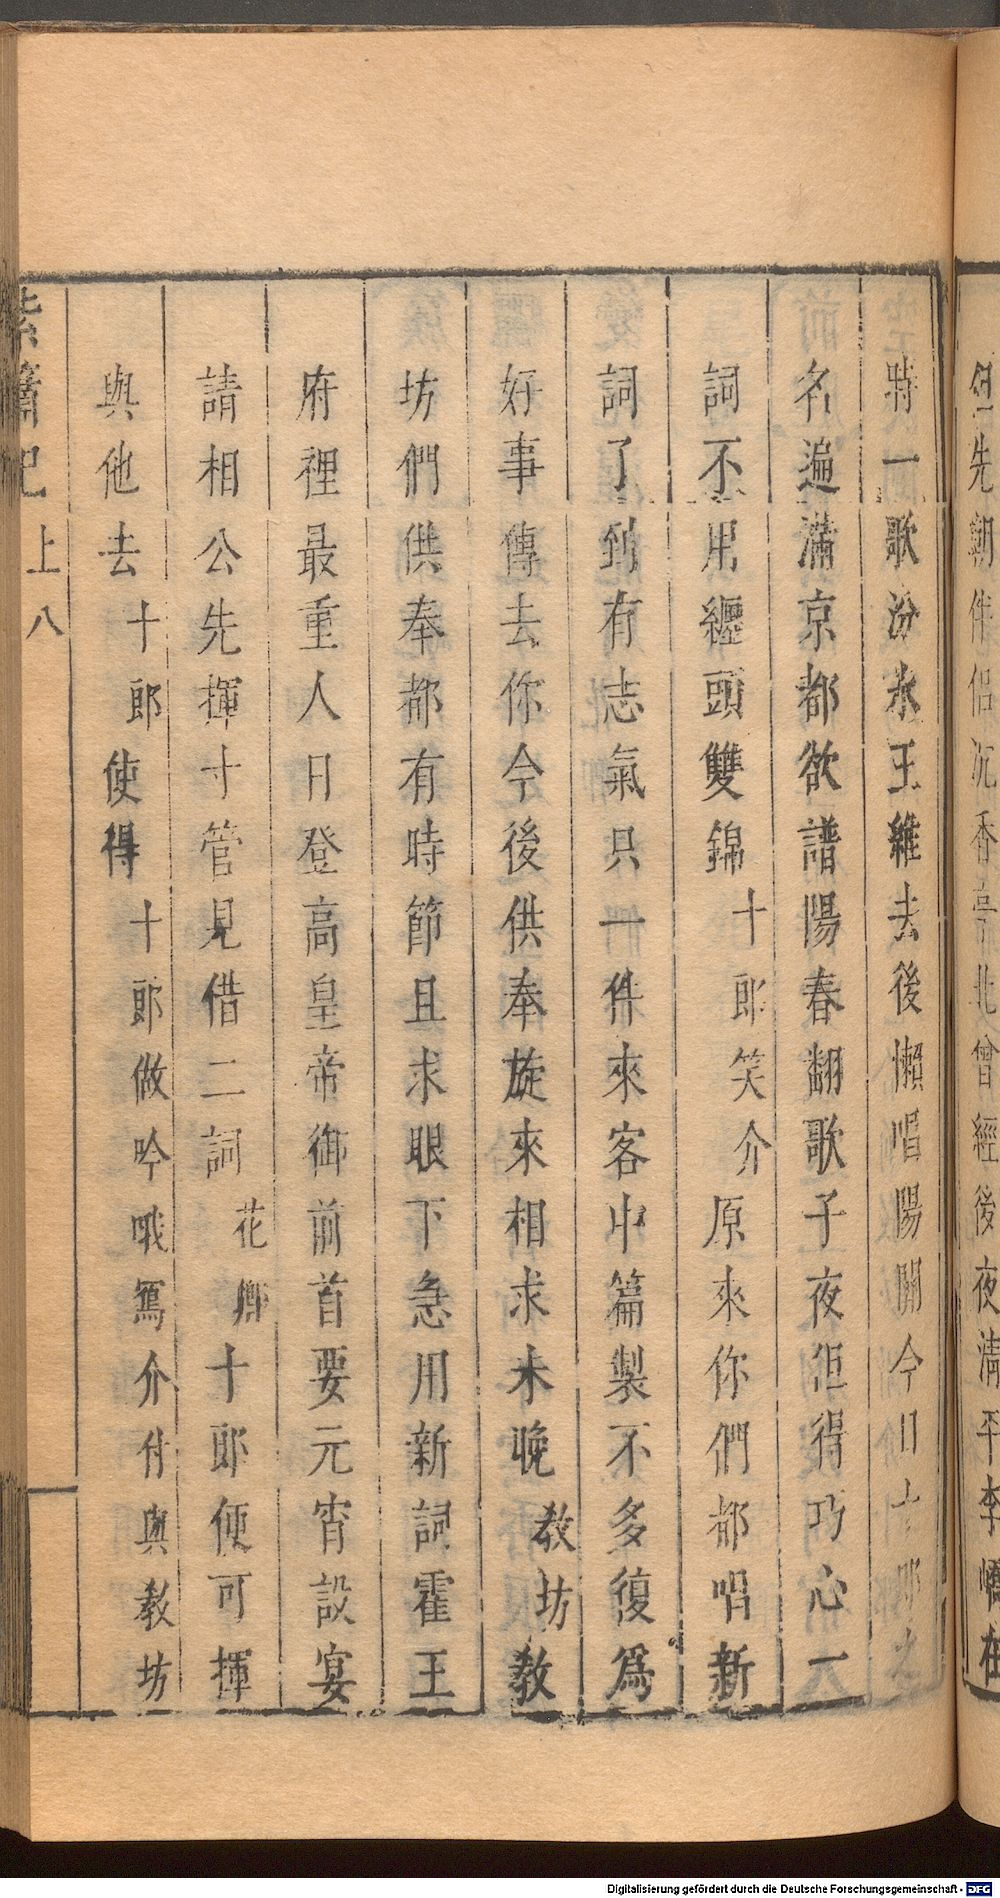 先朝伴侣沉香亭北曾經後夜清平李嶠在
時一歌汾水王維去後懶唱陽關今日十郎之
名遍滿京都欲譜陽春翻歌子夜但得巧心一
詞不用纏頭雙錦十郎笑介原來你們都唱新
詞了到有志氣只一件來客中篇製不多復爲
好事傳去你今後供奉旋來相求未晚教坊教
坊們供奉都有時節且求眼下急用新詞霍王
府裡最重人日登高皇帝御前首要元宵設宴
請相公先揮寸管見借二詞花卿十郎便可揮
與他去十郎使得十郎做吟哦寫介付與教坊
紫簫記 上 八
Digitalisierung gefördert durch die Deutsche Forschungsgemeinschaft - DFG